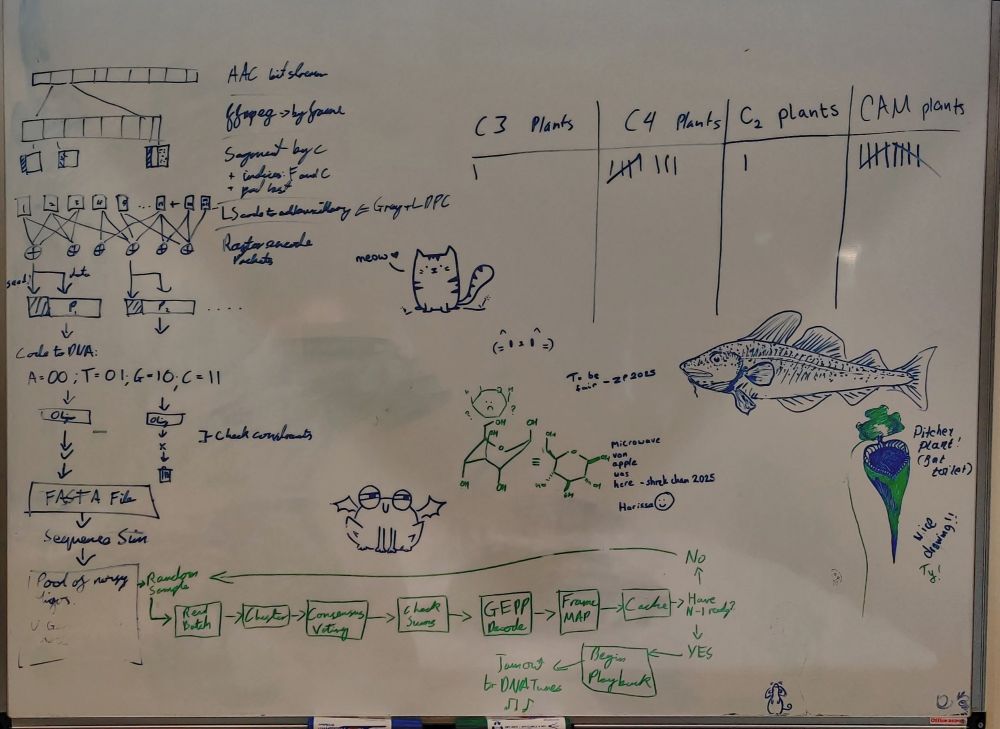 AAC bitstream
ffmpeg → by frame
Segment by C
+ indices F and C
+ pad last
1 2 3 4 5 ... +
Gray + LDPC
Raptor encode
Packets
seed data
P1 P2 ....
Code to DNA:
A=00; T=01; G=10; C=11
Oligo Oligo
} Check constraints
x
FASTA File
Sequence Sim
Pool of noisy
Random
Sample
Read
Batch
Cluster
Consensus
Voting
Check
Sums
GEPP
Decode
Frame
MAP
Cache
Have
N-1 ready?
No
YES
Begin
Playback
Jam out
to DNA Tunes
♫ ♪
C3 Plants
C4 Plants
C2 plants
CAM plants
meow ♥
To be
fair - ZP 2025
OH
OH
OH
OH
OH
OH
≡
Microwave
van
apple
was
here - shrek chan 2025
Harissa
Pitcher
plant!
(Bat
toilet)
Nice
drawing!!
Ty!